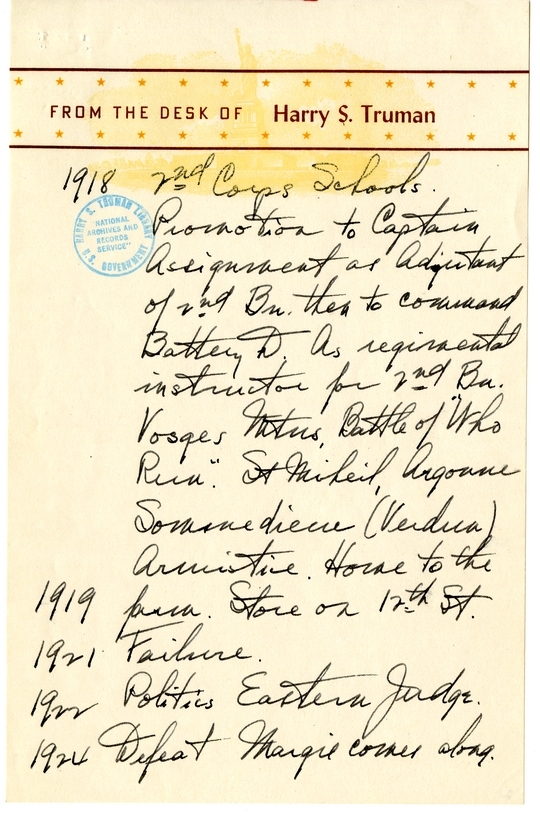 FROM THE DESK OF Harry S. Truman
1918 2nd Corps Schools.
HARRY S. TRUMAN LIBRARY
"NATIONAL
ARCHIVES AND
RECORDS
SERVICE"
U.S. GOVERNMENT
Promotion to Captain
Assignment as Adjutant
of 2nd Bn. then to command
Battery D. As regimental
instructor for 2nd Bn.
Vosges Mtns, Battle of "Who
Run". St Miheil, Argonne
Sommedieue (Verdun)
Armistice. Home to the
1919 farm. Store on 12th St.
1921 Failure.
1922 Politics Eastern Judge.
1924 Defeat Margie comes along.